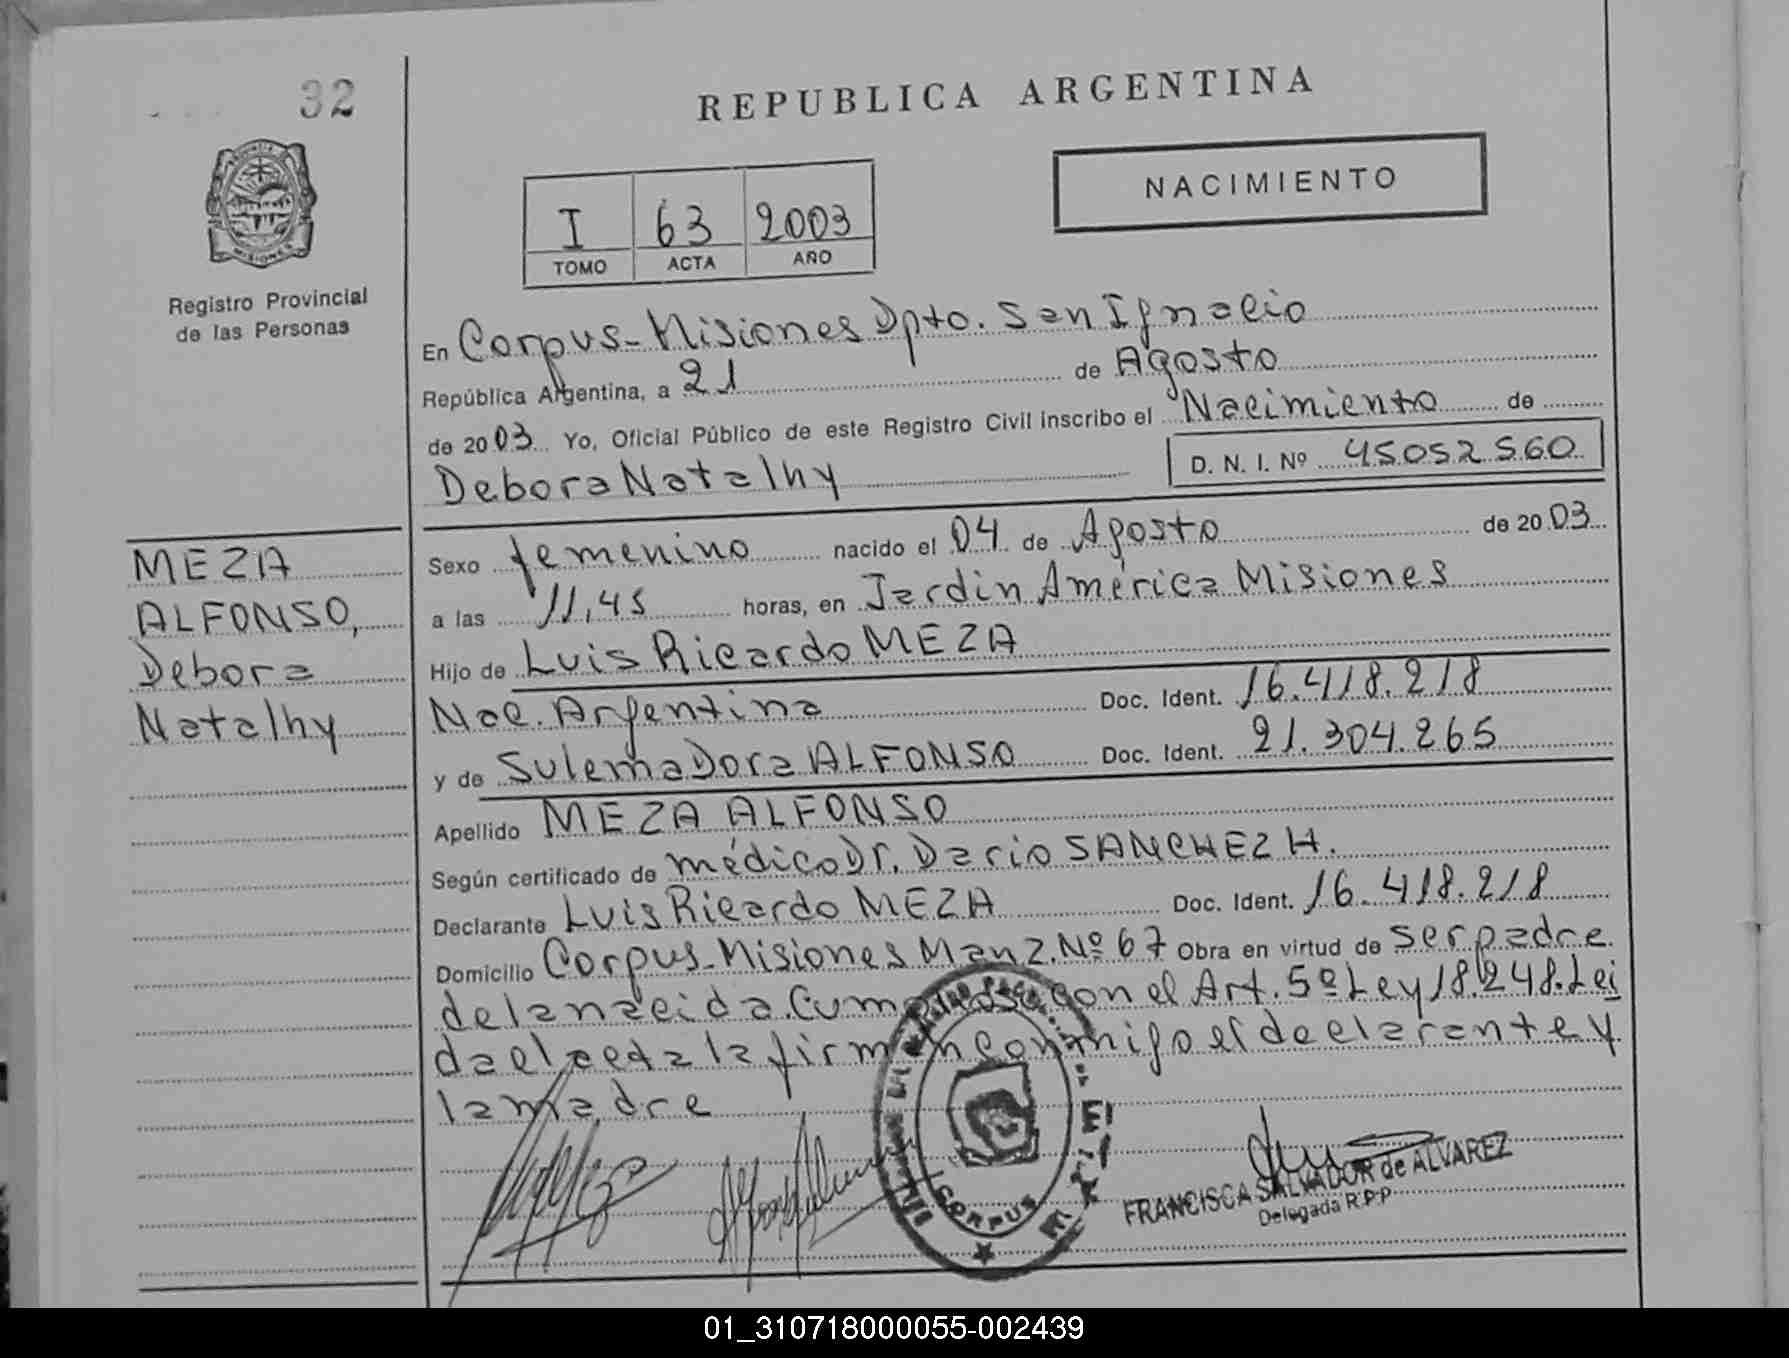 32
REPUBLICA ARGENTINA
NACIMIENTO
I 63 2003
TOMO ACTA AÑO
MISIONES
Registro Provincial
de las Personas
En Corpus-Misiones Dpto. San Ignacio
República Argentina, a 21 de Agosto
de 2003 Yo, Oficial Público de este Registro Civil inscribo el Nacimiento de
Debora Natalhy D. N. I. Nº 45052560
MEZA
ALFONSO,
Debora
Natalhy
Sexo femenino nacido el 04 de Agosto de 2003
a las 11,45 horas, en Jardin América Misiones
Hijo de Luis Ricardo MEZA
Nac. Argentina Doc. Ident. 16.418.218
y de Sulema Dora ALFONSO Doc. Ident. 21.304.265
Apellido MEZA ALFONSO
Según certificado de médico Dr. Dario SANCHEZ H.
Declarante Luis Ricardo MEZA Doc. Ident. 16.418.218
Domicilio Corpus-Misiones Manz. Nº 67 Obra en virtud de ser padre
de la nacida. Cumpliose con el Art. 5º Ley 18.248. Lei
da el acta la firman conmigo el declarante y
la madre
CORPUS
FRANCISCA SALVADOR de ALVAREZ
Delegada R.P.P.
01_310718000055-002439